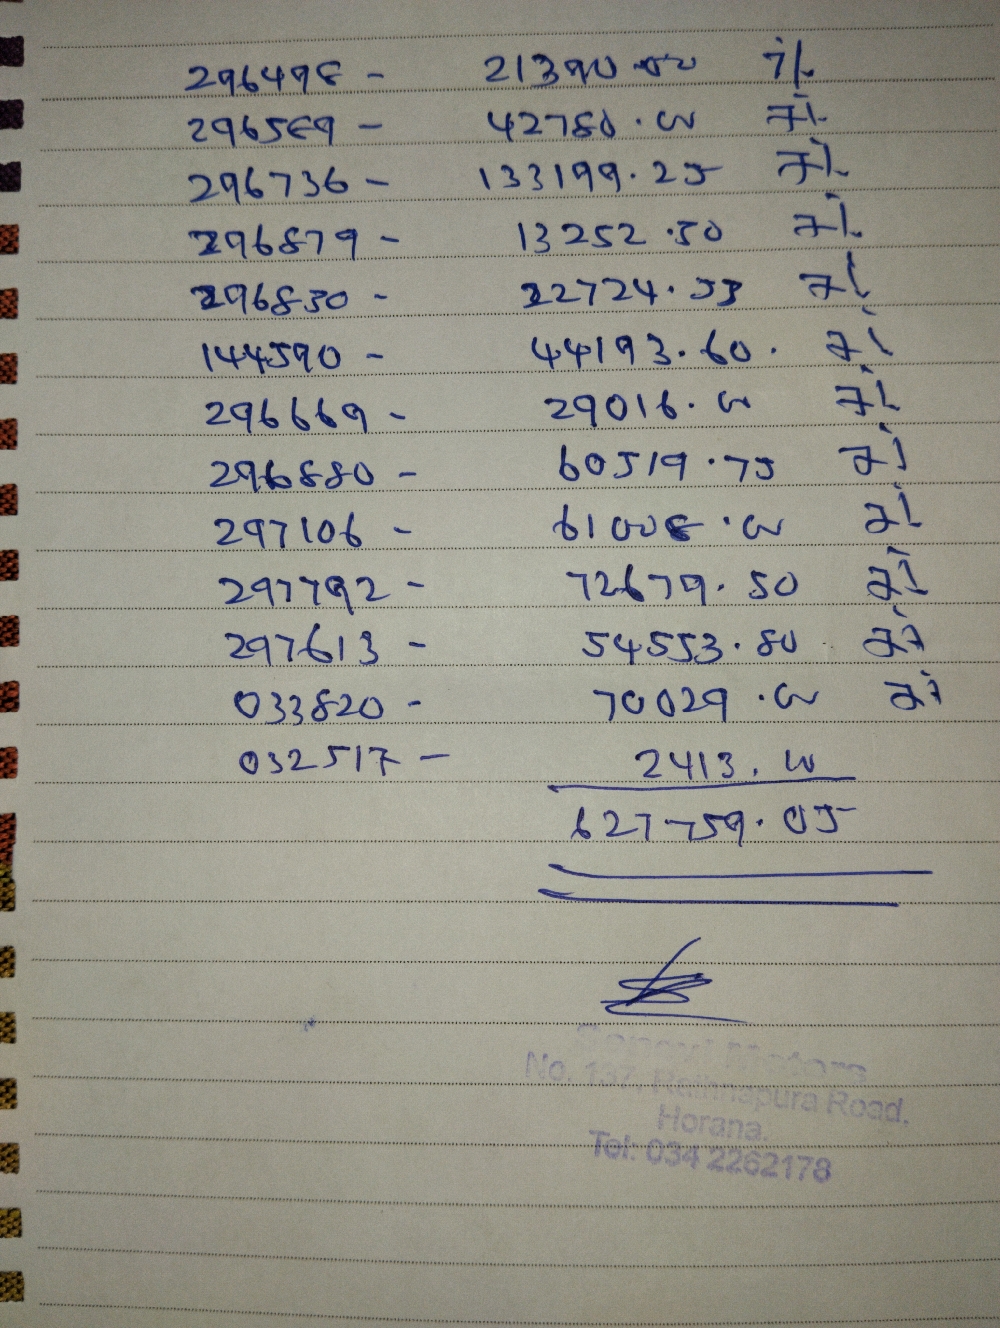 296498 - 21390.00
296569 - 42780.00
296736 - 133199.25
296879 - 13252.50
296830 - 22724.53
144590 - 44193.60.
296669 - 29016.00
296880 - 60519.75
297106 - 61008.00
297792 - 72679.50
297613 - 54553.80
033820 - 70029.00
032517 - 2413.00
627759.05
Motors
No. 137, Rathnapura Road.
Horana.
Tel: 034 2262178